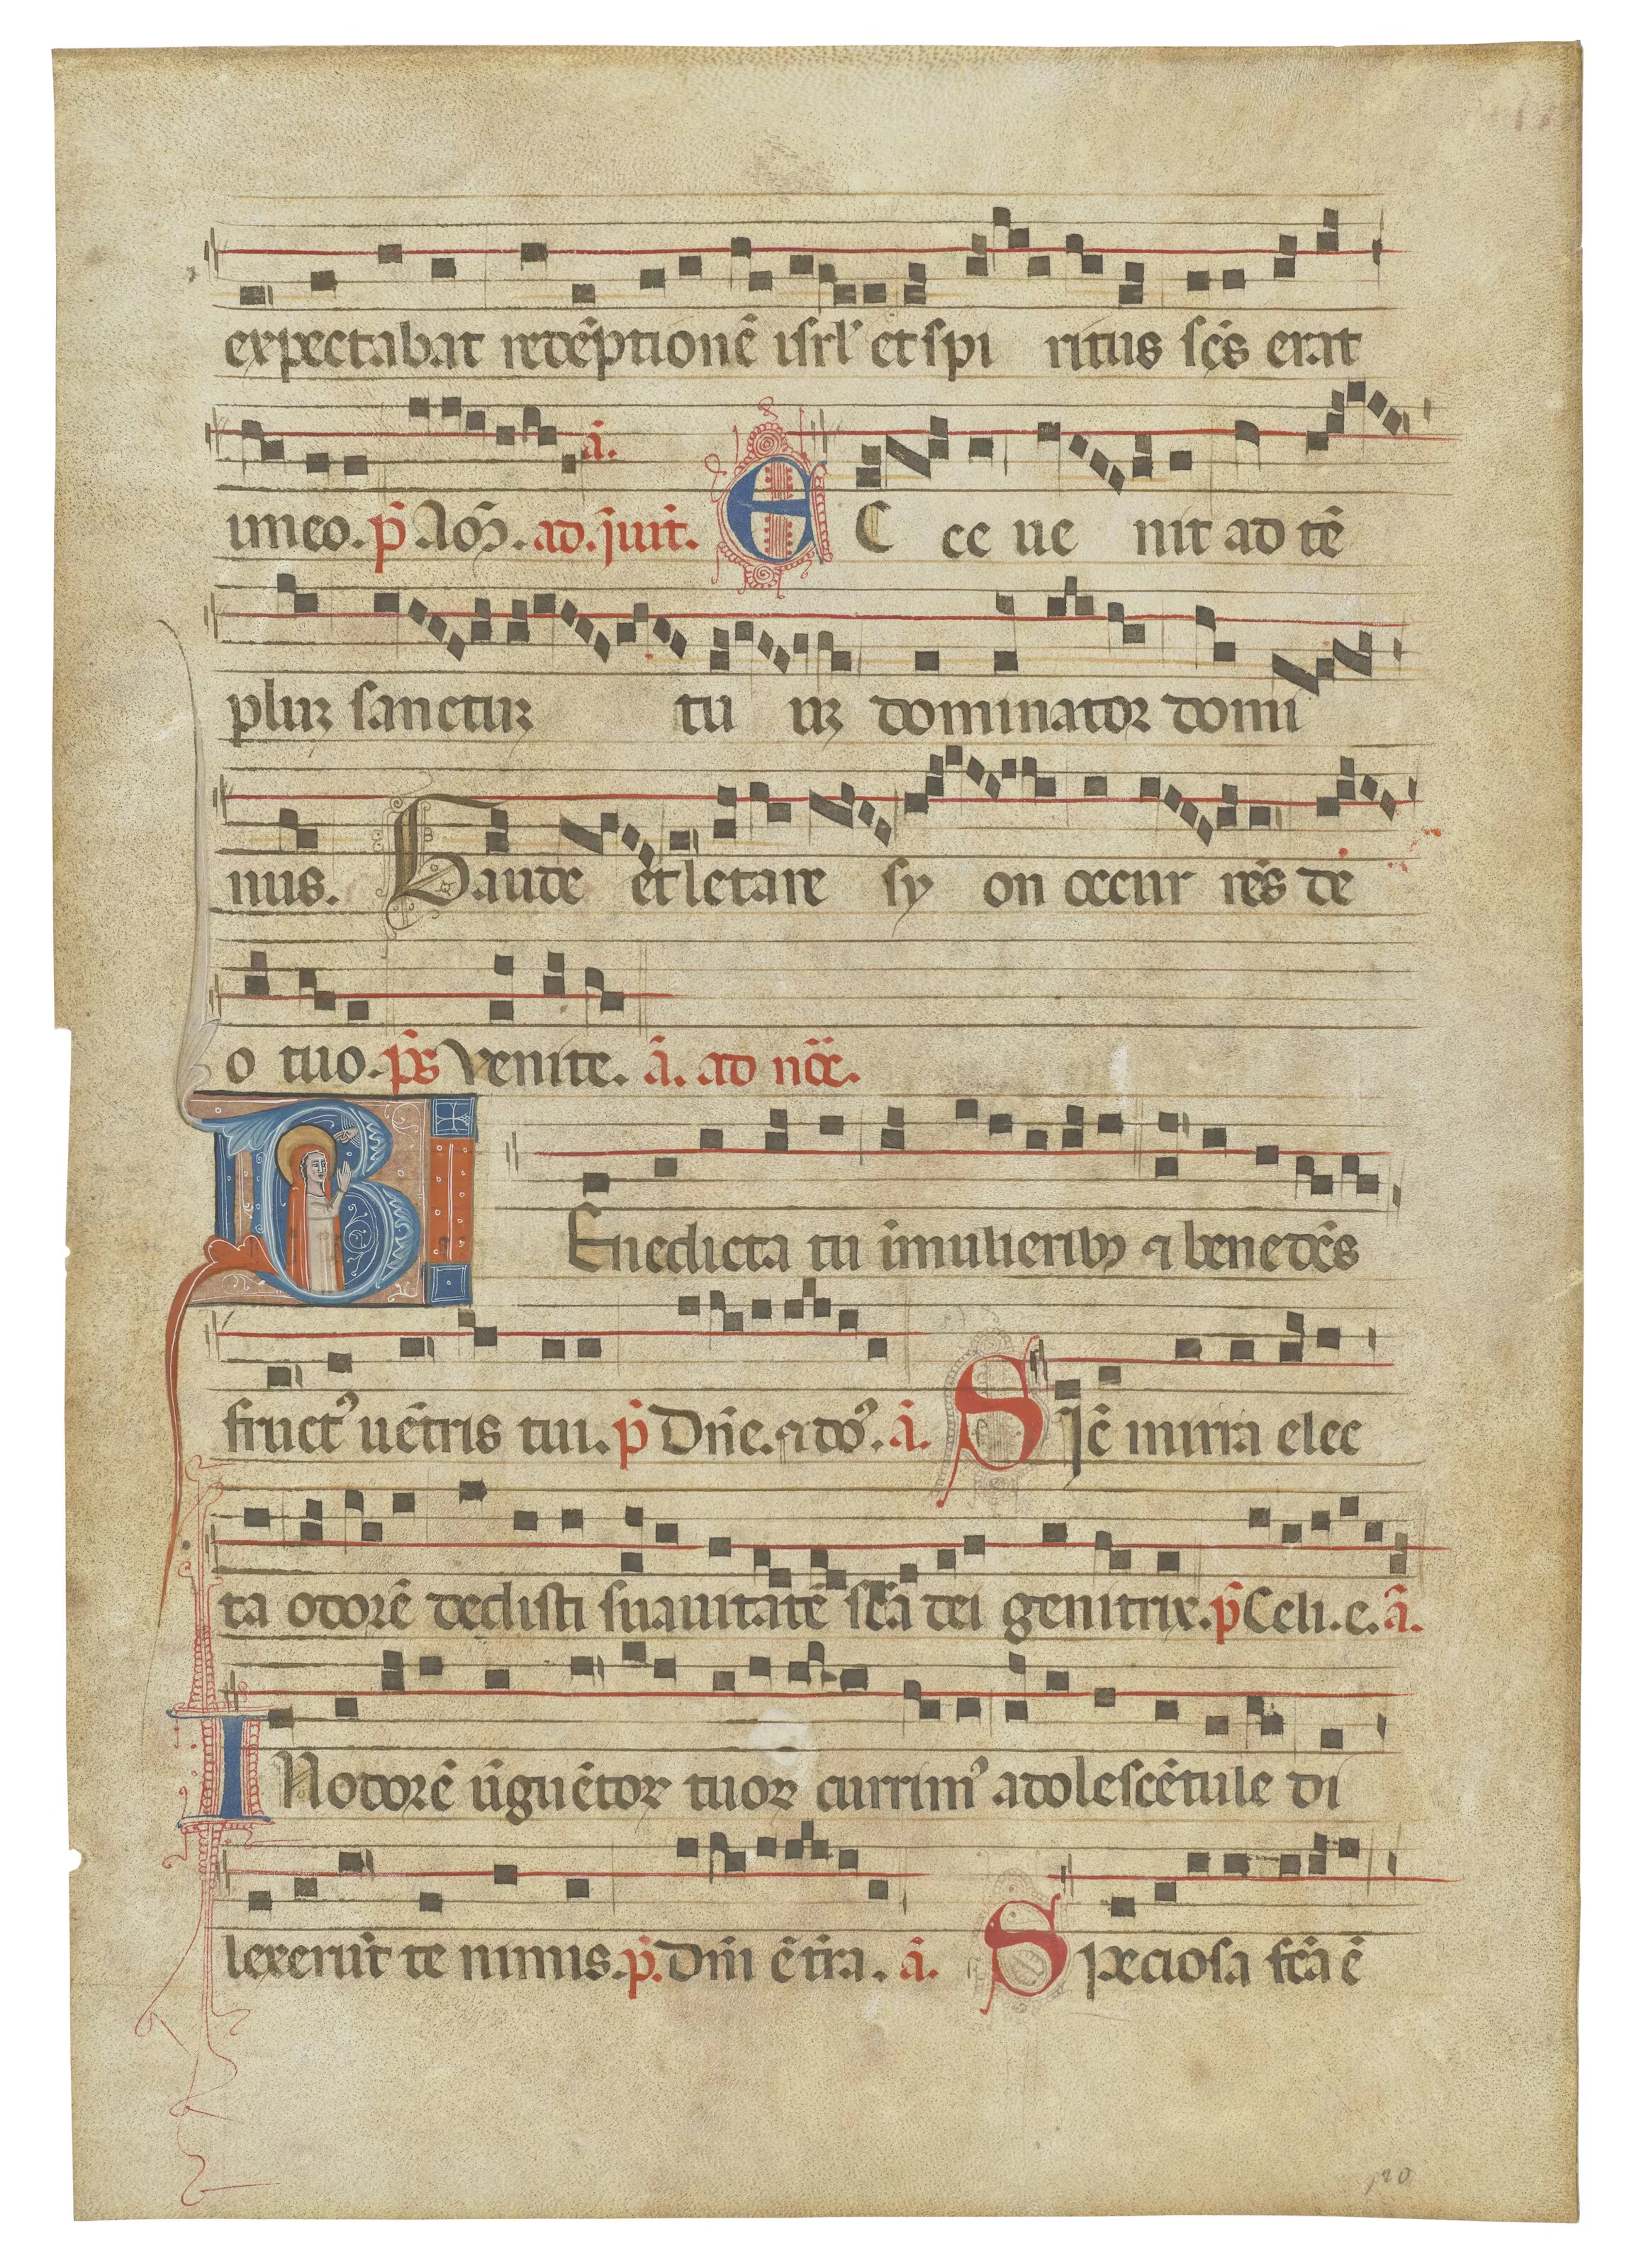 expectabat redẽptionẽ isrl̕ et spi ritus sc̃s erat
in eo. p̃ Mag̃. ad. ĩuit̃. E C ce ue nit ad tẽ
pluꝫ sanctuꝫ tu uꝫ dominator domi
nus. Gaude et letare sy on occur rẽs de
o tuo. p̃s Venite. ã. ad noc̃.
B Enedicta tu ĩ mulierib⁊ benedc̃s
fruct᾽ uẽtris tui. p̃ Dñe. dñs᾽. ã. S Ic̃ mirra elec
ta odorẽ dedisti suauitatẽ sc̃a dei genitrix. p̃ Celi. e. ã.
I N odorẽ ũguẽtoꝝ tuoꝝ currim᾽ adolescẽtule di
lexerũt te nimis. p̃. Dñi ẽ tr̃a. ã. S peciosa fc̃a ẽ
120